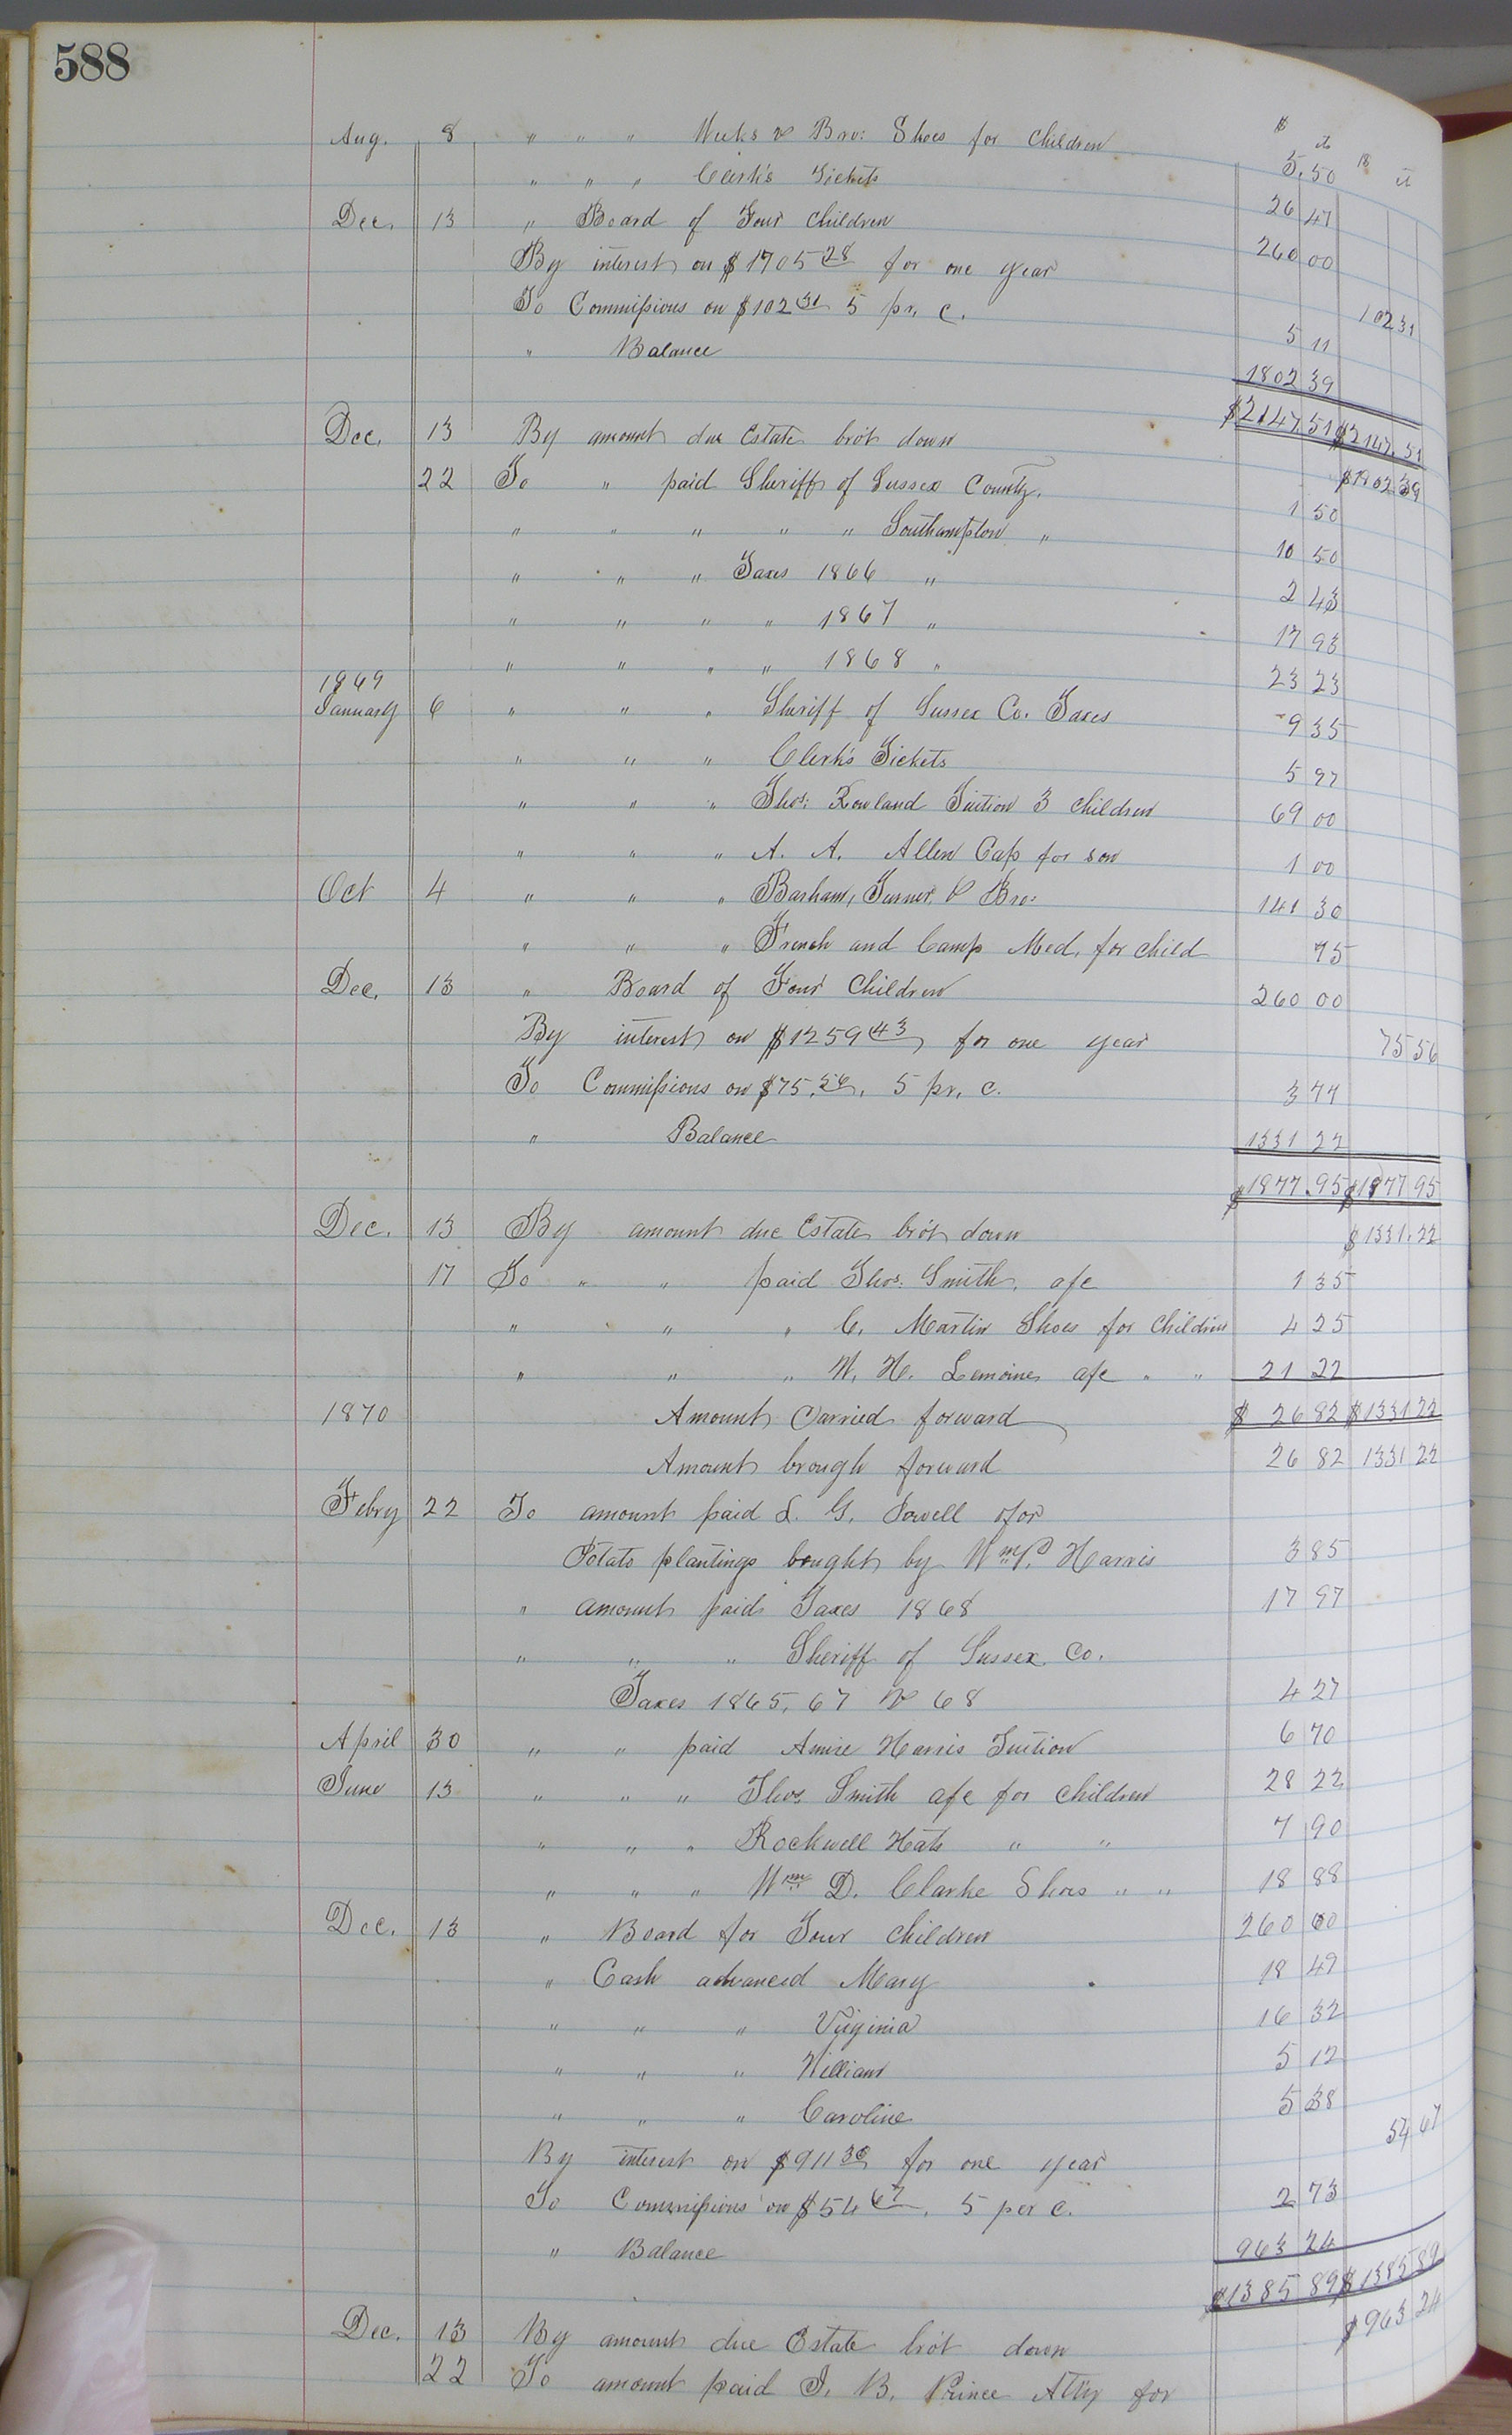 588
$ cts $ cts
Aug. 8 " " " Weeks & Bro: Shoes for Children 5.50
" " " Clerk's Tickets 26 47
Dec. 13 " Board of Four Children 260 00
By interest on $1705 28 for one year 102 31
To Commissions on $102 31 5 pr. c. 5 11
" Balance 1802 39
$2147.51 $2147.51
Dec. 13 By amount due Estate bro't down $1802.39
22 To " paid Sheriff of Sussex County. 1 50
" " " " " Southampton " 10 50
" " " Taxes 1866 " 2 43
" " " " 1867 " 17 93
" " " " 1868 " 23 23
1869
January 6 " " " Sheriff of Sussex Co. Taxes 9 35
" " " Clerk's Tickets 5 97
" " " Thos: Rowland Tuition 3 children 69 00
" " " A. A. Allen Cap for son 1 00
Oct 4 " " " Barham, Turner, & Bro: 141 30
" " " French and Camp Med. for child 75
Dec. 13 " Board of Four Children 260 00
By interest on $1259 43 for one year 75 56
To Commissions on $75.56. 5 pr. c. 3 77
" Balance 1331 22
$1877.95 $1877 95
Dec. 13 By amount due Estate bro't down $1331.22
17 To " " paid Thos. Smith, a/c 1 35
" " " C. Martin Shoes for Children 4 25
" " " W. H. Lemoine a/c " " 21 22
1870 Amount Carried forward $ 26 82 $1331 22
Amount brough forward 26 82 1331 22
Febry 22 To amount paid L. G. Sowell for
Potato plantings bought by Wm. P. Harris 3 85
" amount paid Taxes 1868 17 97
" " " Sheriff of Sussex Co.
Taxes 1865, 67 & 68 4 27
April 30 " " paid Amire Harris Tuition 6 70
June 13 " " " Thos. Smith a/c for children 28 22
" " " Rockwell Hats " " 7 90
" " " Wm D. Clarke Shoes " " 18 88
Dec. 13 " Board for Four children 260 00
" Cash advanced Mary 18 49
" " " Virginia 16 32
" " " William 5 12
" " " Caroline 5 38
By interest on $911 30 for one year 54 67
To Commissions on $54 67. 5 per c. 2 73
" Balance 963 24
$1385 89 $1385 89
Dec. 13 By amount due Estate bro't down $963 24
22 To amount paid J. B. Prince Atty for